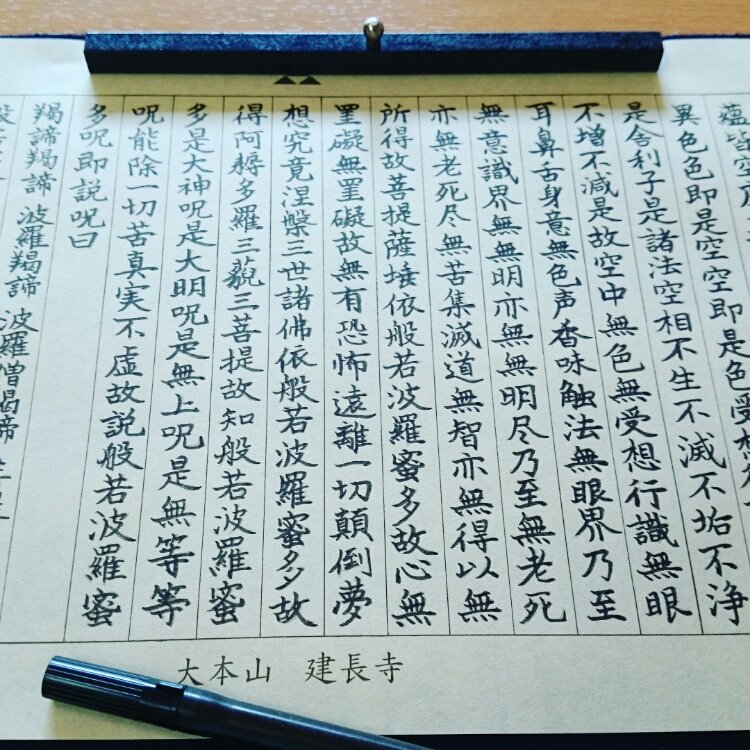 蘊皆空
異色色即是空空即是色受想
是舎利子是諸法空相不生不滅不垢不浄
不増不減是故空中無色無受想行識無眼
耳鼻舌身意無色声香味触法無眼界乃至
無意識界無無明亦無無明尽乃至無老死
亦無老死尽無苦集滅道無智亦無得以無
所得故菩提薩埵依般若波羅蜜多故心無
罣礙無罣礙故無有恐怖遠離一切顛倒夢
想究竟涅槃三世諸佛依般若波羅蜜多故
得阿耨多羅三藐三菩提故知般若波羅蜜
多是大神呪是大明呪是無上呪是無等等
呪能除一切苦真実不虚故説般若波羅蜜
多呪即説呪曰
羯諦羯諦 波羅羯諦 波羅僧羯諦
大本山 建長寺